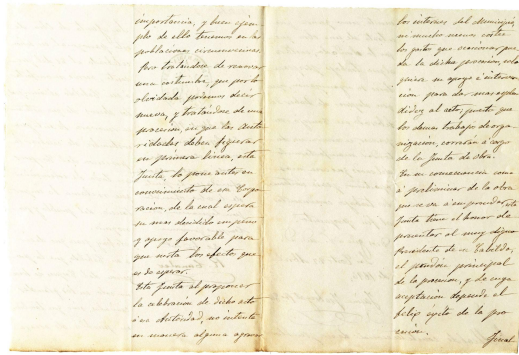 importancia, y buen ejem-
plo de ello tenemos en las
poblaciones circunvecinas.
Pero tratándose de renovar
una costumbre, que por lo
olvidada podriamos decir
nueva, y tratándose de una
procesion, en que las Auto-
ridades deben figurar
en primera linea, esta
Junta, lo pone antes en
conocimiento de esa Corpo-
racion, de la cual espera
su mas decidido empeño
y apoyo favorable para
que surta los efectos que
es de esperar.
Esta Junta al proponer
la celebracion de dicho acto
á su Autoridad, no intenta
en manera alguna agravar
los intereses del Municipio,
ni mucho menos costee
los gastos que ocasionar pue-
da la dicha procesion, solo
quiere su apoyo é interven-
cion para dar mas esplen-
didez al acto, puesto que
los demas trabajos de orga-
nizacion, correran á cargo
de la Junta de Obra.
En su consecuencia como
á preliminar de la obra
que se va á emprender esta
Junta tiene el honor de
presentar al muy digno
Presidente de ese Cabildo,
el pendon principal
de la procesion, y de cuya
aceptacion depende el
feliz exito de la pro-
cesion.